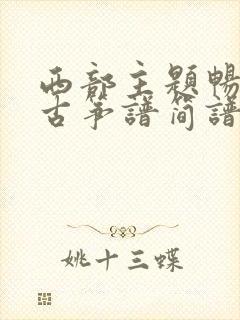 西部主题畅
古筝谱简谱
姚十三蝶